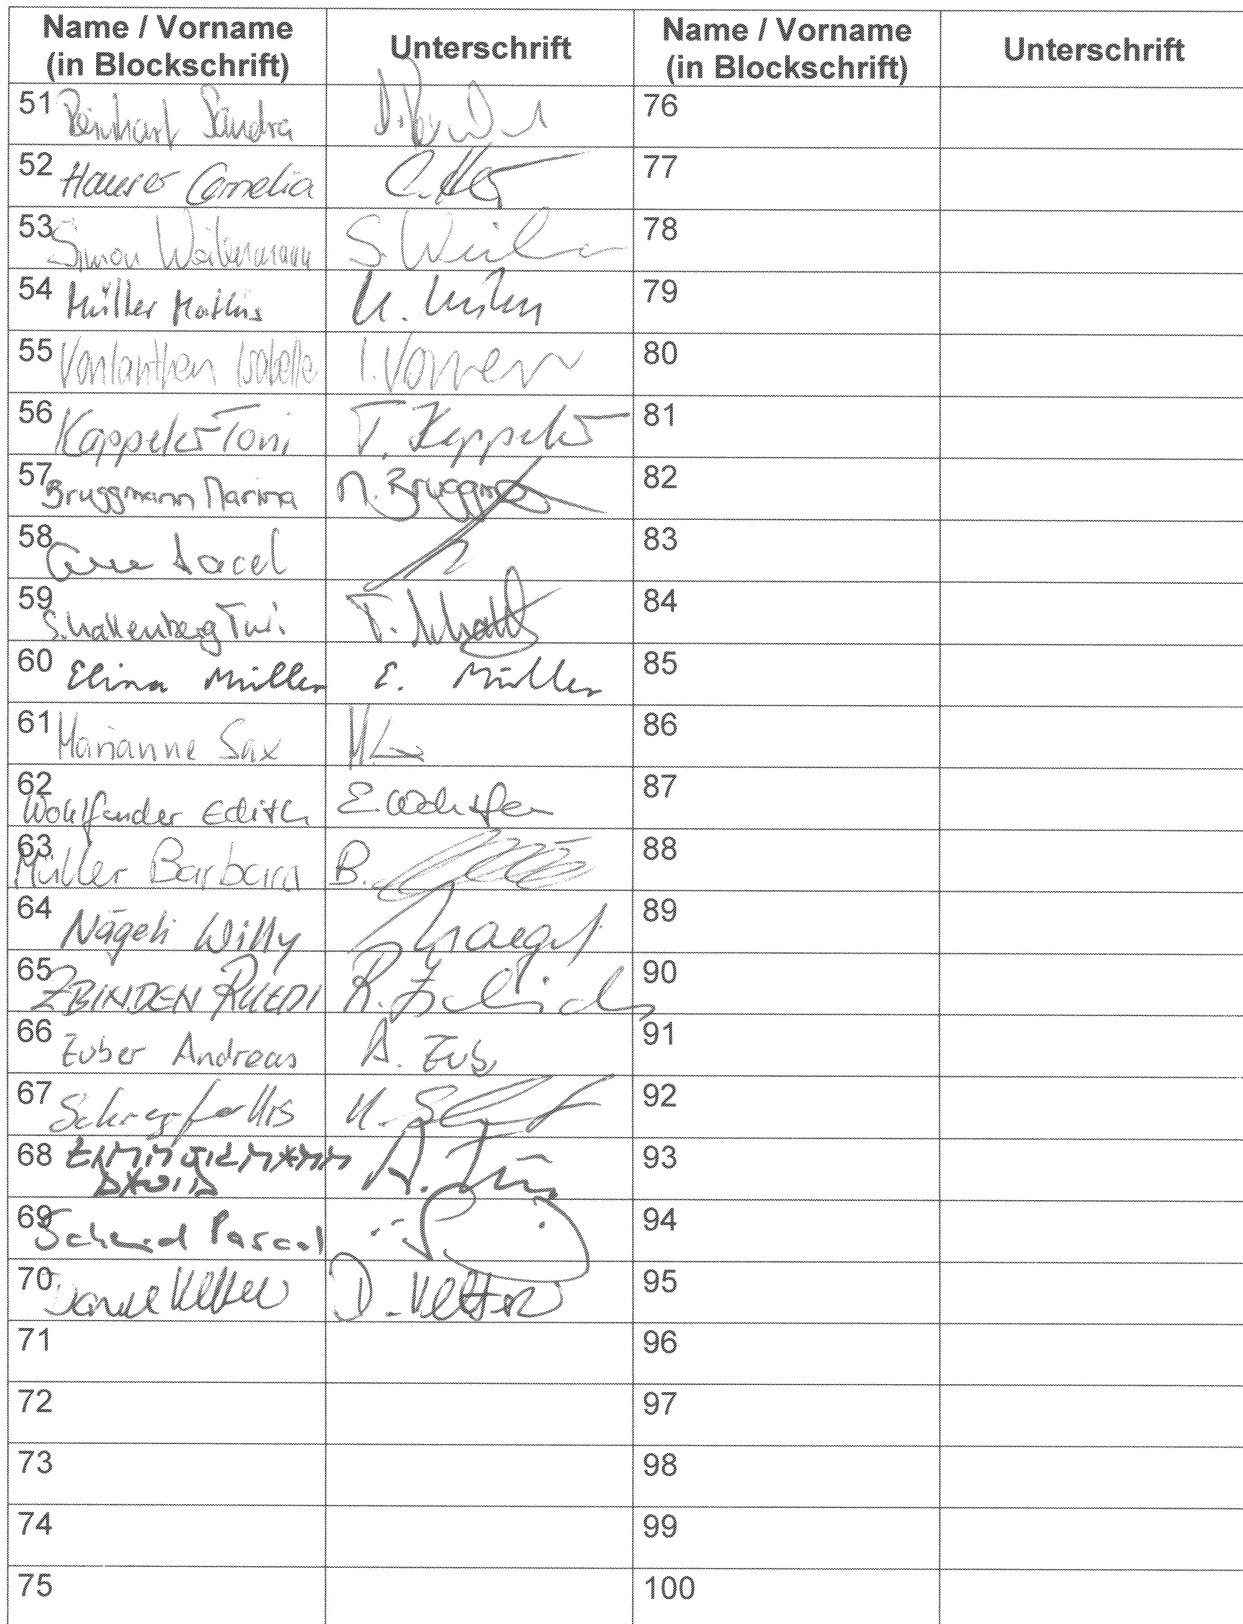 Name / Vorname
(in Blockschrift)
Unterschrift
Name / Vorname
(in Blockschrift)
Unterschrift
51 Reinhart Sandra
76
52 Hauser Cornelia
77
53 Simon Weilenmann S. Weil
78
54 Müller Mathis
79
55 Vonlanthen Isabelle
80
56 Kappeler Toni T. Kappeler
81
57 Bruggmann Marina M. Bruggm
82
58
83
59 Schallenberg Turi T. Schall
84
60 Elina Müller E. Müller
85
61 Marianne Sax
86
62 Wohlfender Edith E. Wohlfen
87
63 Müller Barbara B.
88
64 Nägeli Willy Naegeli
89
65 ZBINDEN RUEDI R. Zbinden
90
66 Zuber Andreas A. Zub
91
67 Schrepfer Urs U.
92
68 ZIMMERMANN
DAVID
93
69 Schmid Pascal
94
70 Daniel Vetterli D. Vetterli
95
71
96
72
97
73
98
74
99
75
100